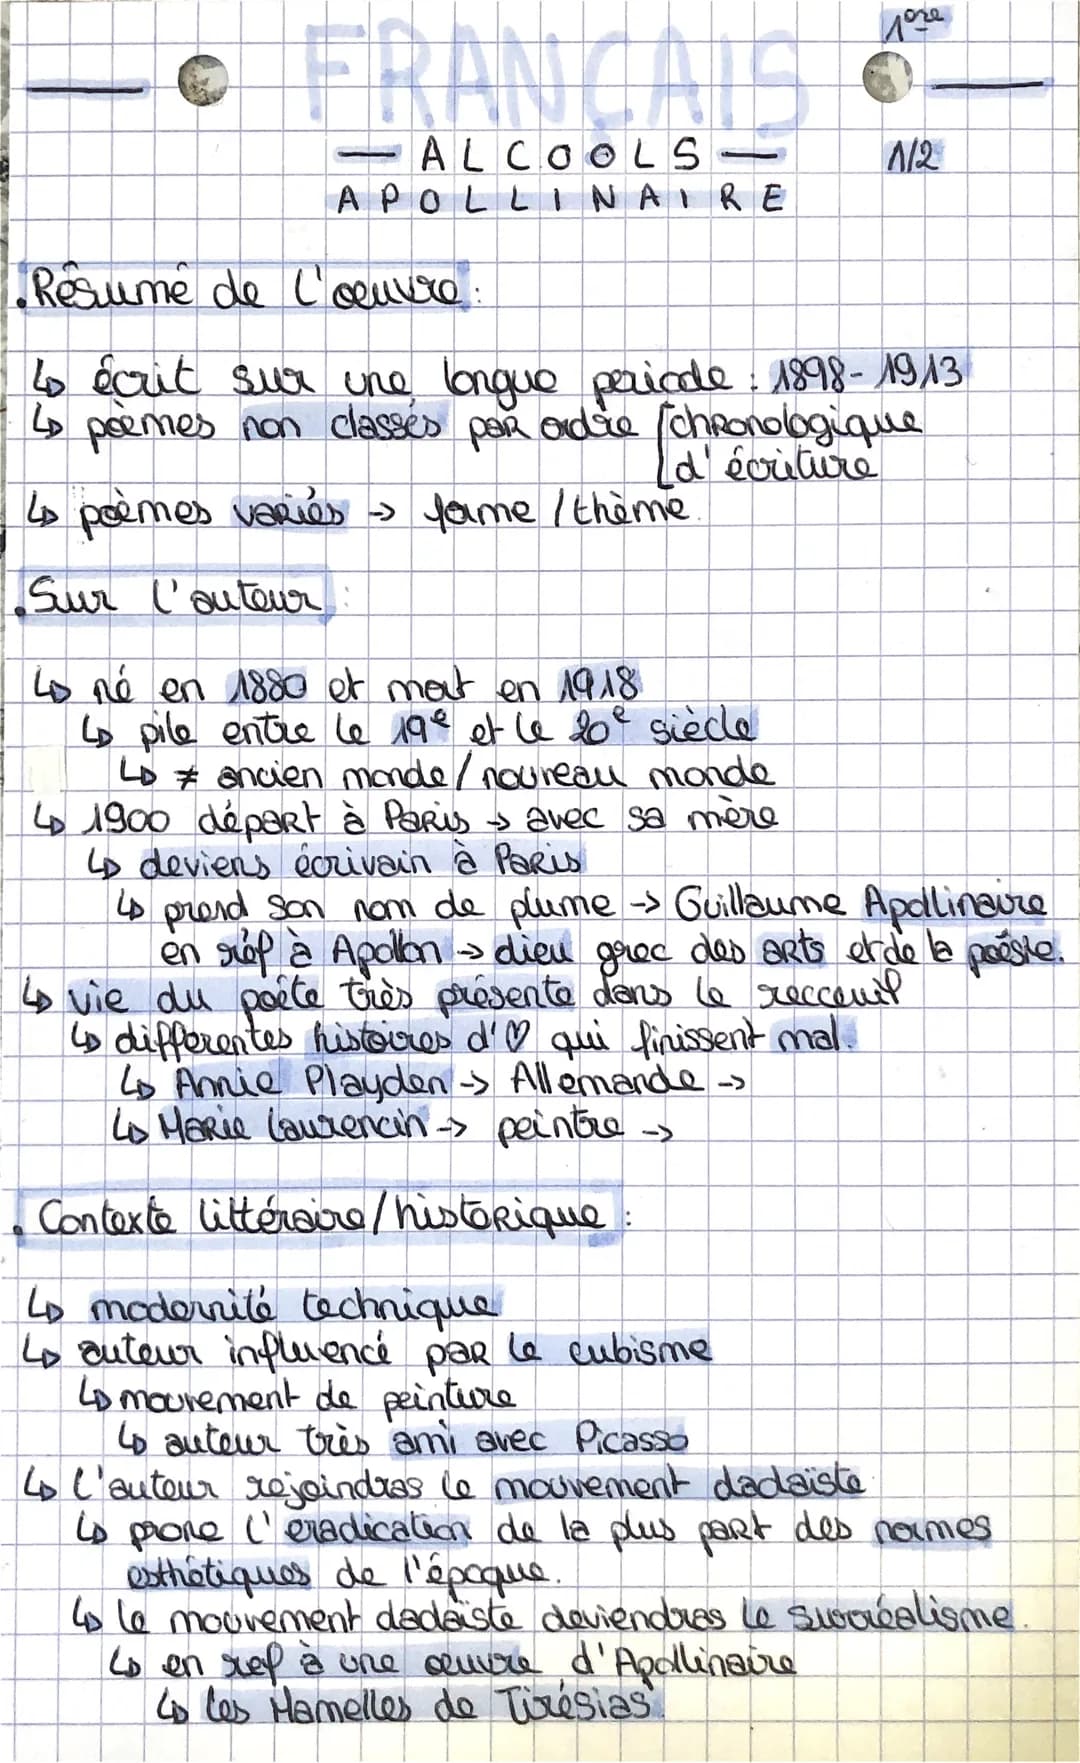 1ère
FRANÇAIS
— ALCOOLS —
1/2
APOLLINAIRE
.Résumé de l'oeuvre:
↳ écrit sur une longue periode : 1898-1913
↳ poèmes non classés par ordre [chronologique
[d'écriture
↳ poèmes variés → forme / thème.
.Sur l'auteur :
↳ né en 1880 et mort en 1918
↳ pile entre le 19e et le 20e siècle
↳ ≠ ancien monde / nouveau monde
↳ 1900 départ à Paris → avec sa mère
↳ deviens écrivain à Paris
↳ prend son nom de plume → Guillaume Apollinaire
en réf à Apollon → dieu grec des arts et de la poésie.
↳ vie du poète très présente dans le recceuil
↳ differentes histoires d'♡ qui finissent mal.
↳ Annie Playden → Allemande →
↳ Marie Laurencin → peintre →
. Contexte littéraire/historique :
↳ modernité technique
↳ auteur influencé par le cubisme
↳ mouvement de peinture
↳ auteur très ami avec Picasso
↳ l'auteur rejoindras le mouvement dadaïste
↳ prone l'eradication de la plus part des normes
esthétiques de l'époque.
↳ le mouvement dadaïste deviendras le surréalisme.
↳ en ref à une œuvre d'Apollinaire
↳ Les Mamelles de Tirésias.